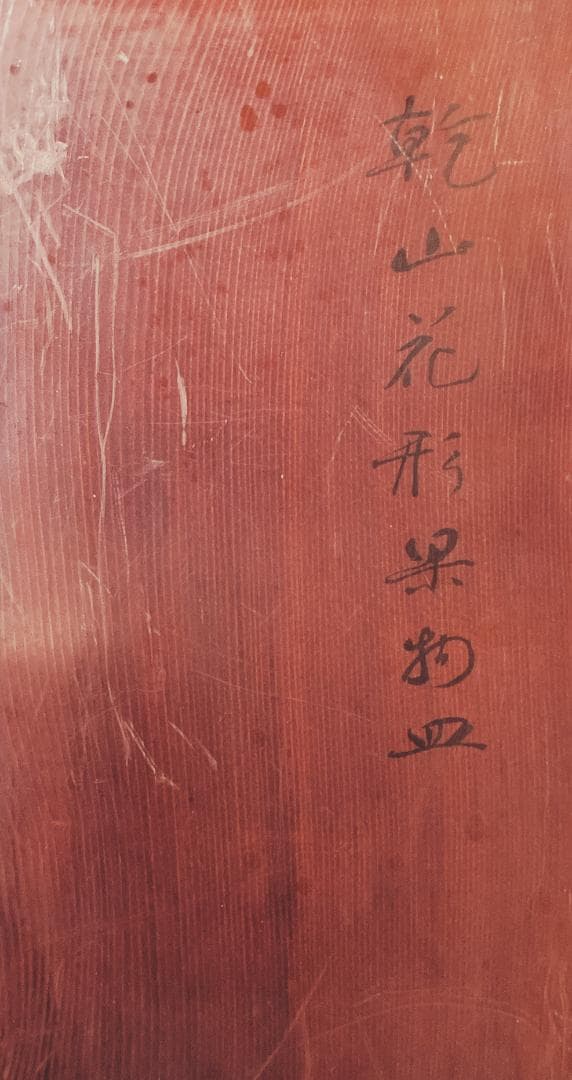 乾山花形果物皿